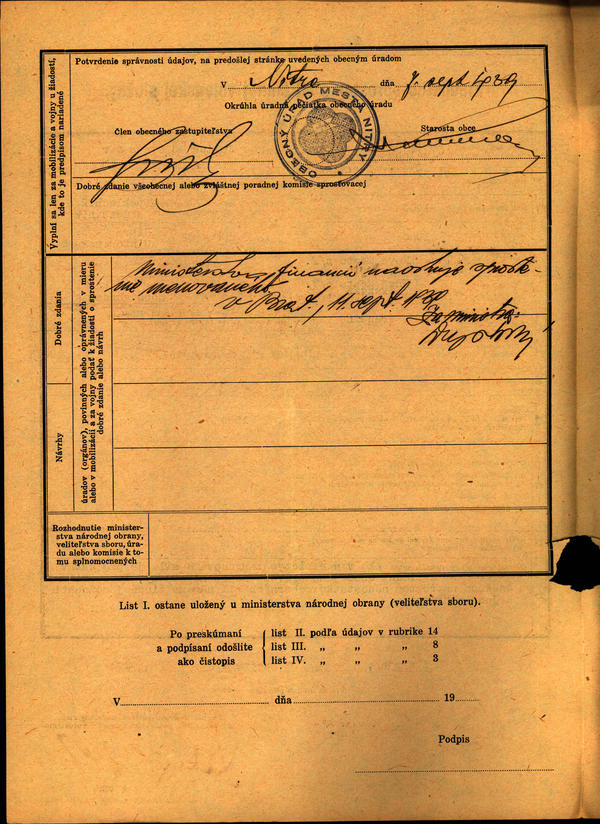 Vyplní sa len za mobilizácie a vojny u žiadostí,
kde to je predpisom nariadené
Potvrdenie správnosti údajov, na predošlej stránke uvedených obecným úradom
V Nitre dňa 7. sept. 939
Okrúhla úradná pečiatka obecného úradu
OBECNÝ ÚRAD MESTA NITRY
Člen obecného zastupiteľstva
Starosta obce
Dobré zdanie všeobecnej alebo zvláštnej poradnej komisie sprosťovacej
Dobré zdania
Návrhy
úradov (orgánov), povinných alebo oprávnených v mieru
alebo v mobilizácii a za vojny podať k žiadosti o sprostenie
dobré zdanie alebo návrh
Ministerstvo financií navrhuje sproste-
nie menovaného
V Brat., 11. sept. 1939
Za ministra:
Rozhodnutie minister-
stva národnej obrany,
veliteľstva sboru, úra-
du alebo komisie k to-
mu splnomocnených
List I. ostane uložený u ministerstva národnej obrany (veliteľstva sboru).
Po preskúmaní
a podpísaní odošlite
ako čistopis
list II. podľa údajov v rubrike 14
list III. „ „ „ 8
list IV. „ „ „ 3
V dňa 19
Podpis